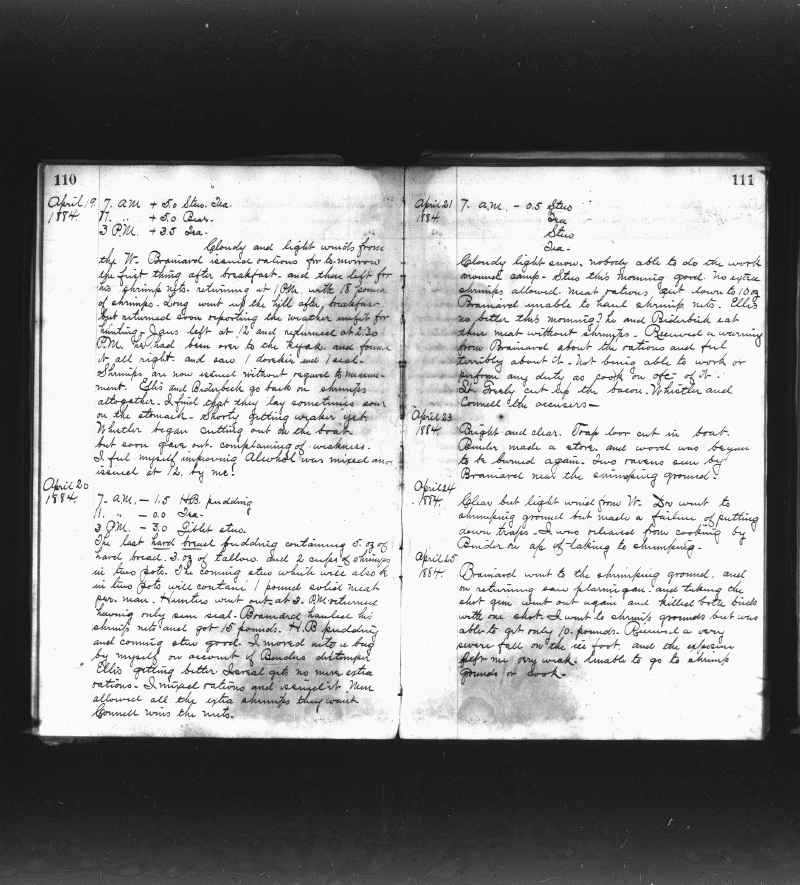 110
April 19 7. A.M. + 5.0 Stew. Tea.
1884. 11. " + 5.0 Bear.
3 P.M. + 3.5 Tea.
Cloudy and light winds from
the W. Brainard issued rations for to-morrow
the first thing after breakfast. and then left for
his shrimp nets. returning at 1 P.M. with 18 pounds
of shrimps. Long went up the hill after breakfast
but returned soon reporting the weather unfit for
hunting. Jans left at 12 and returned at 2:30
P.M. he had been over to the kyak. and found
it all right. and saw 1 dovekie and 1 seal.
Shrimps are now issued without regard to measure-
ment. Ellis and Biderbeck go back on shrimps
altogether. I find that they lay sometimes sour
on the stomach. Shorty getting weaker yet.
Whisler began cutting out on the boat
but soon gave out. complaining of weakness.
I feel myself improving Alcohol was mixed and
issued at 12. by me!
April 20
1884. 7. A.M. – 1.5 H.B. pudding
11. " – 0.0 Tea-
3 P.M. – 3.0 Giblet stew.
The last hard bread pudding containing 5. oz of
hard bread. 3. oz of tallow. and 2 cups of shrimps
in two pots. The coming stew which will also be
in two pots will contain 1 pound solid meat
per. man. Hunters went out at 3. P.M. returned
having only seen seal. Brainard hauled his
shrimp nets and got 15 pounds. H.B pudding
and coming stew good. I moved into a bag
by myself on account of Benders distemper
Ellis getting better. Israel gets no more extra
rations. I mixed rations and issued it. Men
allowed all the extra shrimps they want
Connell wins the nuts.
111
April 21 7. A.M. – 0.5 Stew
1884. Tea
Stew
Tea-
Cloudy light snow. nobody able to do the work
around camp. Stew this morning good. No extra
shrimps allowed. meat rations cut down to 10 oz
Brainard unable to haul shrimp nets. Ellis
no better this morning? he and Biderbick eat
their meat without shrimps. Received a warning
from Brainard about the rations and feel
terribly about it. Not being able to work or
perform any duty as cook on of it.
Lt. Greely cut up the bacon. Whistler and
Connell the accusers—
April 23
1884. Bright and clear. Trap door cut in boat.
Bender made a stove. and wood was begun
to be burned again. Two ravens seen by
Brainard near the shrimping ground.
April 24
1884. Clear but light wind from W. Dr went to
shrimping ground but made a failure of putting
down traps. I was released from cooking by
Bender on of taking to shrimping.
April 25
1884. Brainard went to the shrimping ground. and
on returning saw ptarmigan. and taking the
shot gun went out again and killed both birds
with one shot. I went to shrimp grounds but was
able to get only 10. pounds. Received a very
severe fall on the ice foot. and the exposure
left me very weak. Unable to go to shrimp
grounds or cook-